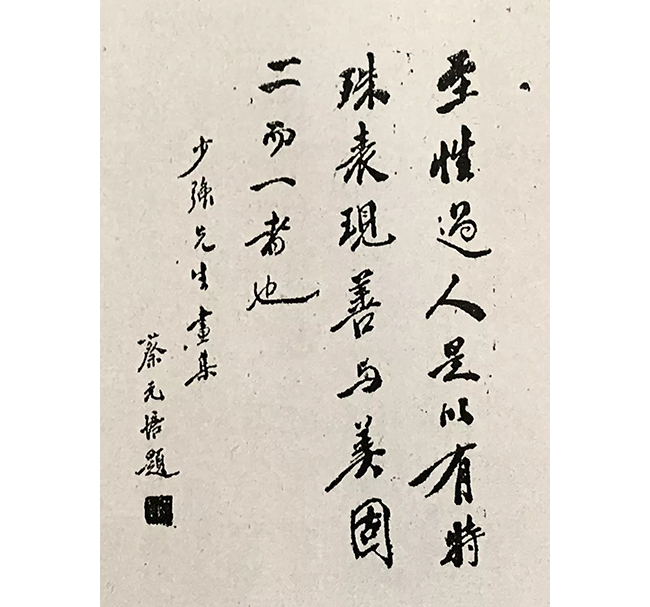 至性過人是以有特
殊表現善与美固
二而一者也
少強先生畫集
蔡元培題